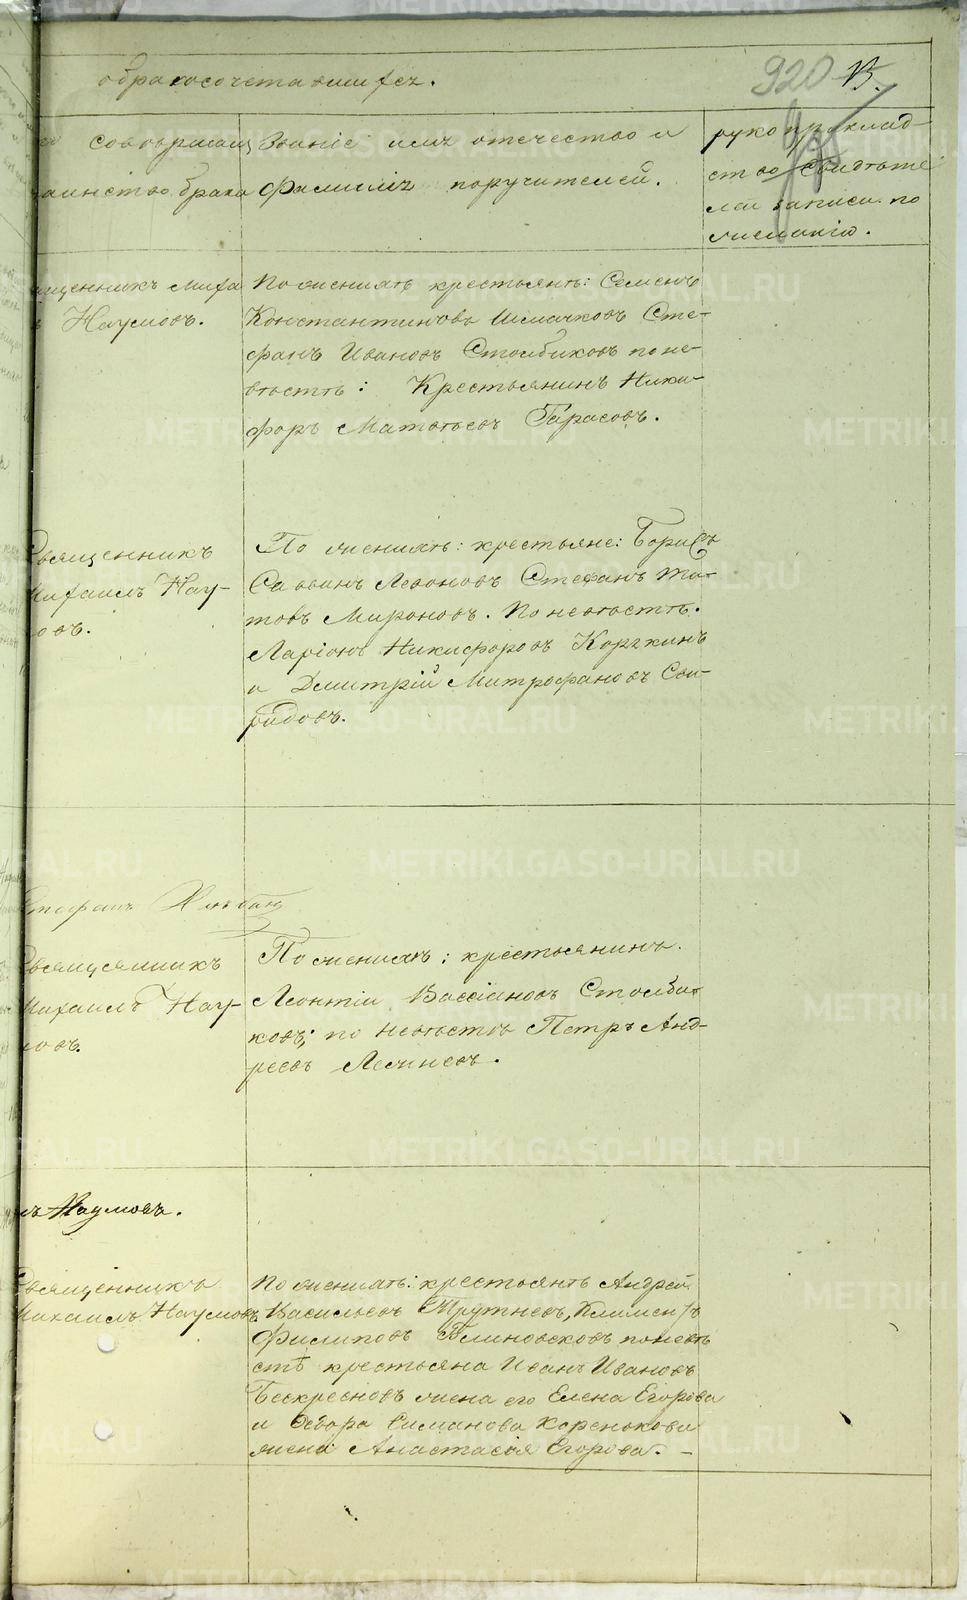 о бракосочетавшихся.
920
совершалъ
таинство брака
Званіе имя отечество и
фамилія поручителей.
рукоприклад-
ство свидѣте
лей записи по
желанію.
Наумовъ.
По женихѣ крестьянѣ: Семенъ
Константиновъ Шмачковъ Сте-
фанъ Ивановъ Столбиковъ по не-
вѣстѣ: Крестьянинъ Ники-
форъ Матвѣевъ Тарасовъ.
Священникъ
Михаилъ Нау-
мовъ.
По женихѣ: крестьяне: Борисъ
Савинъ Леоновъ Стефанъ
Мироновъ. По невѣстѣ.
Ларіонъ Никифоровъ
и Дмитрій Митрофановъ Сви-
ридовъ.
Стефанъ
Священникъ
Михаилъ Нау-
мовъ.
По женихѣ: крестьянинъ.
Леонтій Вассіановъ Столби-
ковъ; по невѣстѣ Петръ Анд-
реевъ
Наумовъ.
Священникъ
Михаилъ Наумовъ
По женихѣ: крестьянѣ Андрей
Васильевъ Трутневъ, Климентъ
Филиповъ Блиновсковъ по невѣ
стѣ крестьяна Иванъ Ивановъ
Бескресновъ жена его Елена Егорова
и Ѳедора Симанова Коренокова
жена Анастасія Егорова. -
METRIKI.GASO-URAL.RU